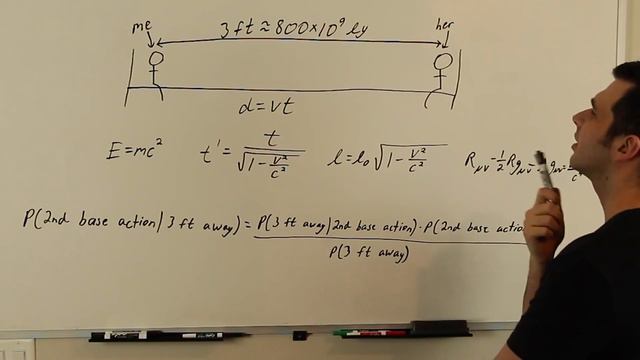 me 3 ft ≈ 800×10⁹ ly her
d = vt
E = mc² t' = t / √(1 - v²/c²) l = l₀ √(1 - v²/c²) Rμν - 1/2 Rgμν
P(2nd base action | 3 ft away) = P(3 ft away | 2nd base action) · P(2nd base actio
P(3 ft away)